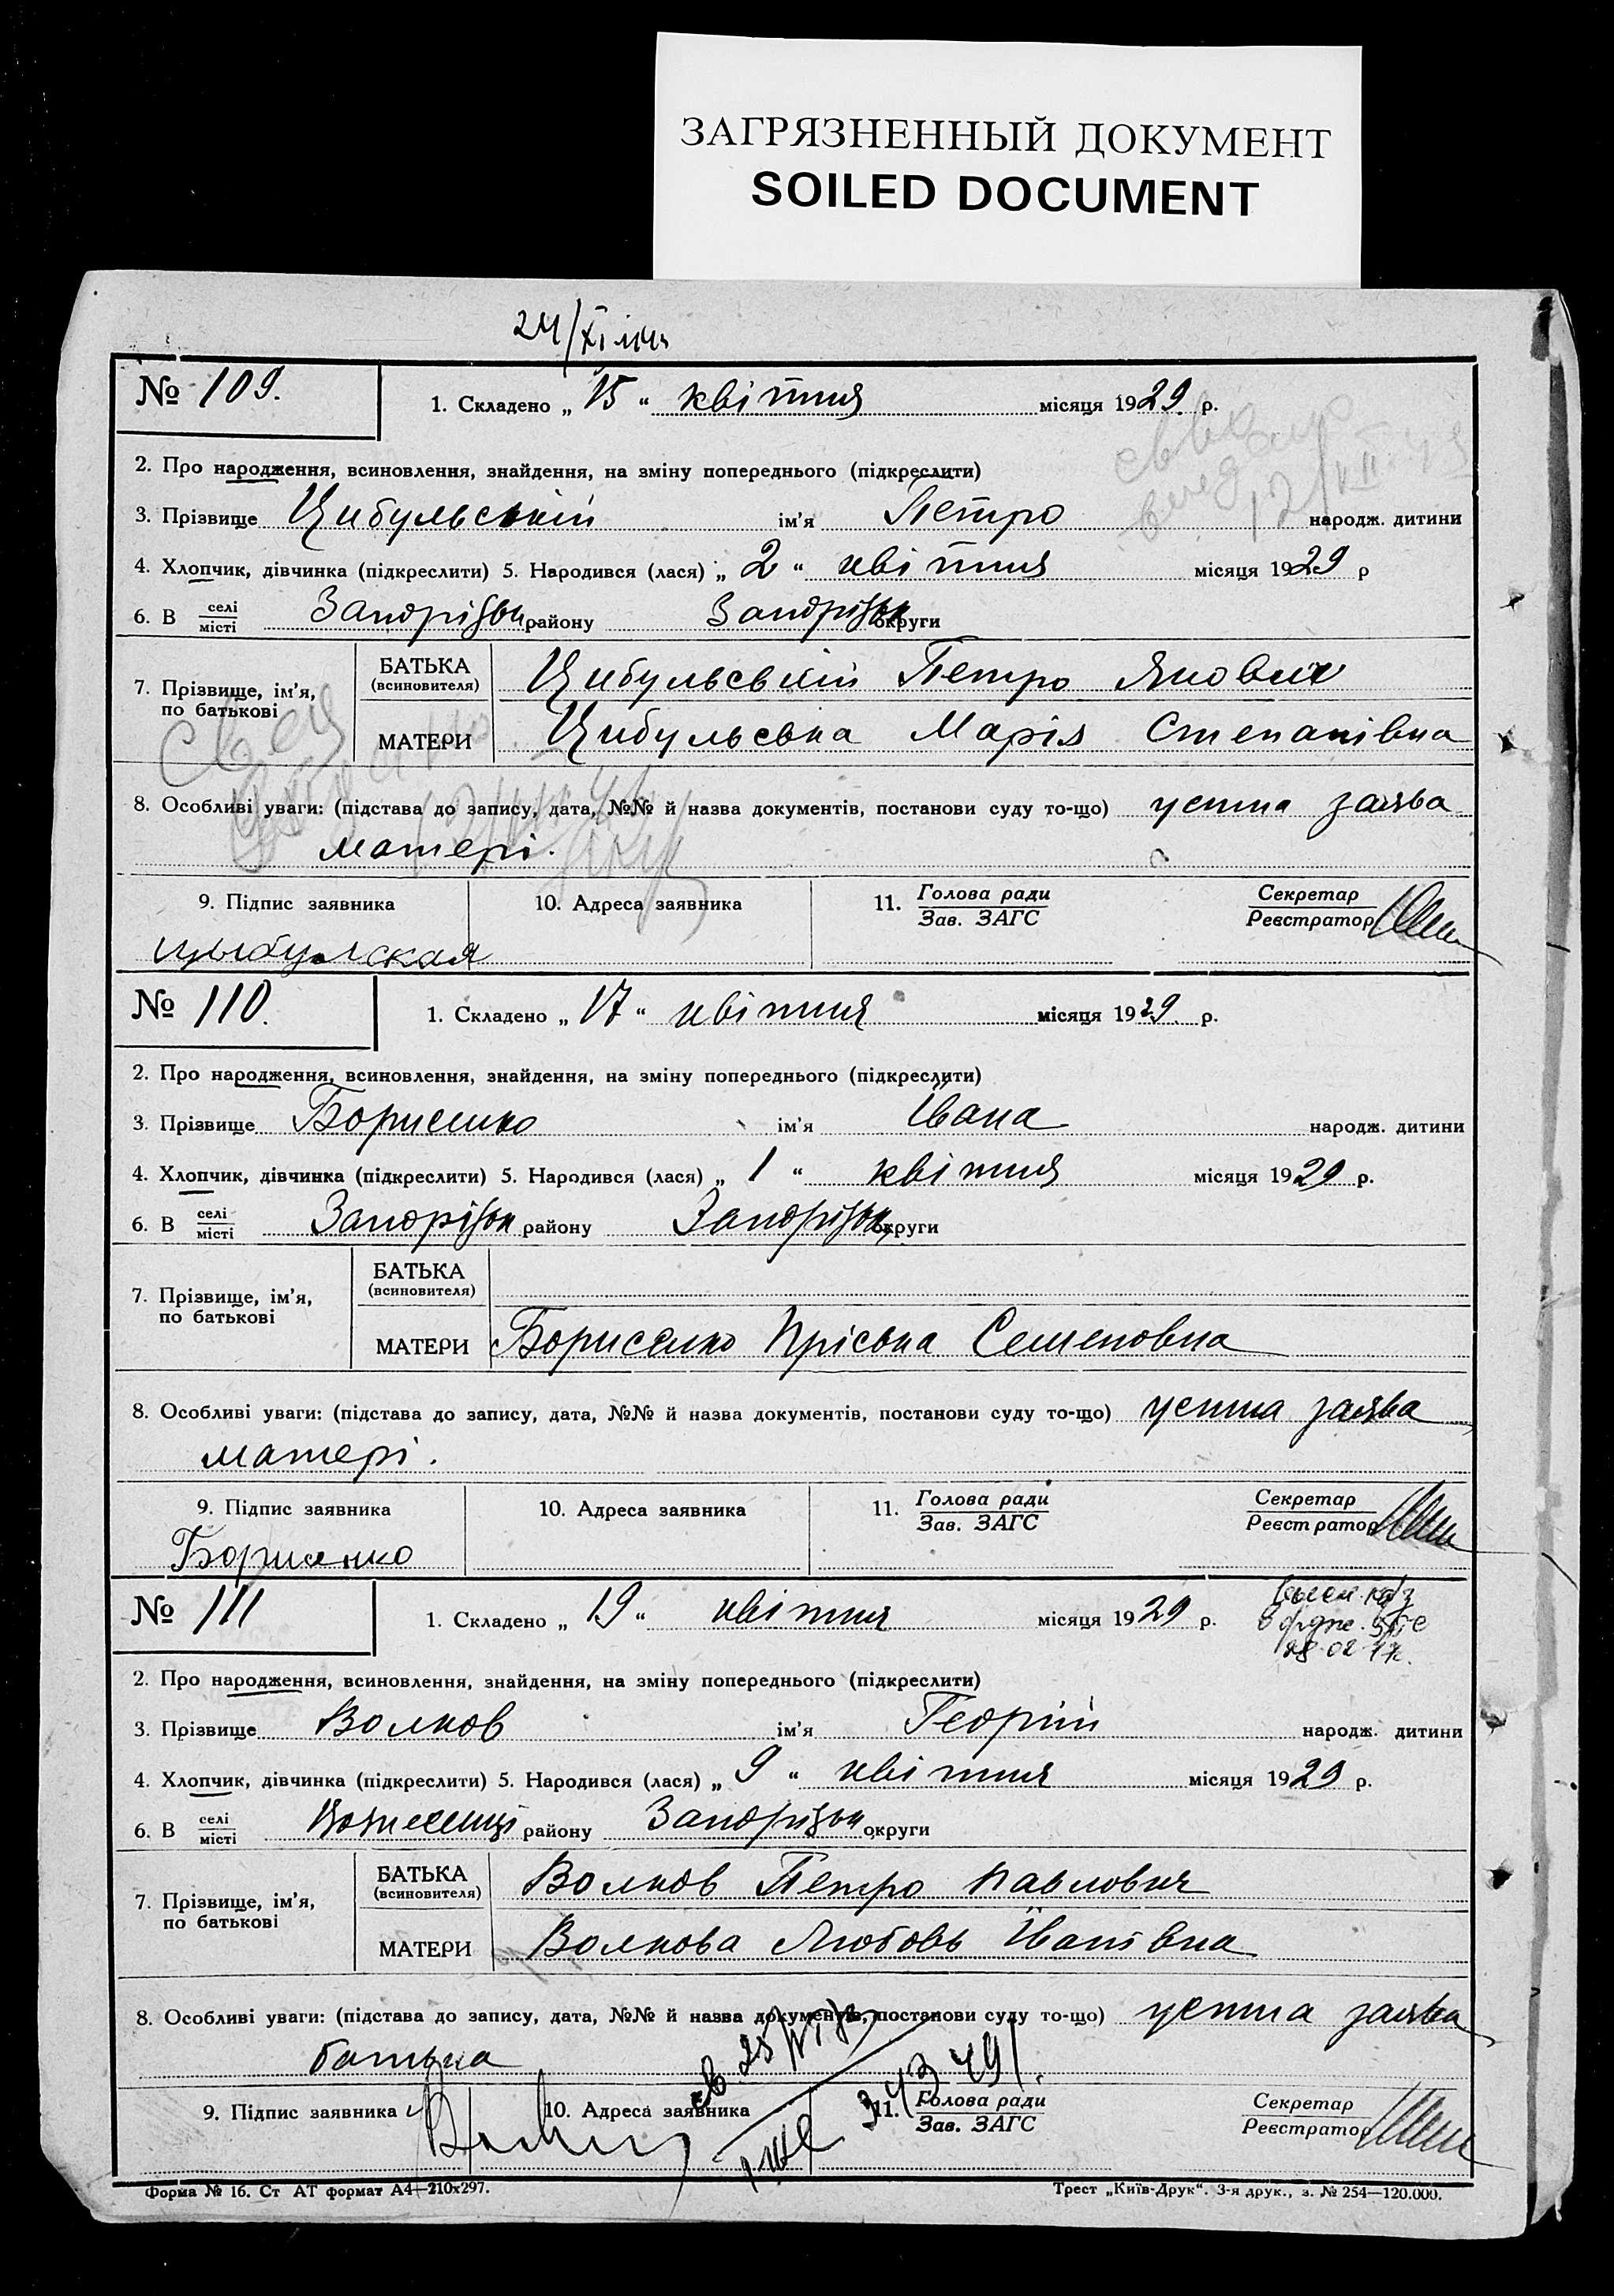 ЗАГРЯЗНЕННЫЙ ДОКУМЕНТ
SOILED DOCUMENT
24/XI
№ 109. 1. Складено „ 15 “ квітня місяця 1929 р.
2. Про народження, всиновлення, знайдення, на зміну попереднього (підкреслити)
3. Прізвище Цибульський ім'я Петро народж. дитини
4. Хлопчик, дівчинка (підкреслити) 5. Народився (лася) „ 2 “ квітня місяця 1929 р
6. В селі/місті Запорізьк району Запорізьк округи
7. Прізвище, ім'я, по батькові
БАТЬКА (всиновителя) Цибульський Петро Якович
МАТЕРИ Цибульська Марія Степанівна
8. Особливі уваги: (підстава до запису, дата, №№ й назва документів, постанови суду то-що) устна заява
матері.
9. Підпис заявника 10. Адреса заявника 11. Голова ради/Зав. ЗАГС Секретар/Реєстратор
Цыбулская
№ 110. 1. Складено „ 17 “ квітня місяця 1929. р.
2. Про народження, всиновлення, знайдення, на зміну попереднього (підкреслити)
3. Прізвище Борисенко ім'я Івана народж. дитини
4. Хлопчик, дівчинка (підкреслити) 5. Народився (лася) „ 1 “ квітня місяця 1929 р.
6. В селі/місті Запорізьк району Запорізьк округи
7. Прізвище, ім'я, по батькові
БАТЬКА (всиновителя)
МАТЕРИ Борисенко Пріська Семеновна
8. Особливі уваги: (підстава до запису, дата, №№ й назва документів, постанови суду то-що) устна заява
матері.
9. Підпис заявника 10. Адреса заявника 11. Голова ради/Зав. ЗАГС Секретар/Реєстратор
Борисенко
№ 111 1. Складено „ 19 “ квітня місяця 1929 р.
2. Про народження, всиновлення, знайдення, на зміну попереднього (підкреслити)
3. Прізвище Волков ім'я Георгій народж. дитини
4. Хлопчик, дівчинка (підкреслити) 5. Народився (лася) „ 9 “ квітня місяця 1929 р.
6. В селі/місті району Запорізьк округи
7. Прізвище, ім'я, по батькові
БАТЬКА (всиновителя) Волков Петро Павлович
МАТЕРИ Волкова Любовь Іванівна
8. Особливі уваги: (підстава до запису, дата, №№ й назва документів, постанови суду то-що) устна заява
батька
9. Підпис заявника 10. Адреса заявника 11. Голова ради/Зав. ЗАГС Секретар/Реєстратор
Форма № 16. Ст АТ формат А4—210х297. Трест „Київ-Друк“. 3-я друк., з. № 254—120.000.